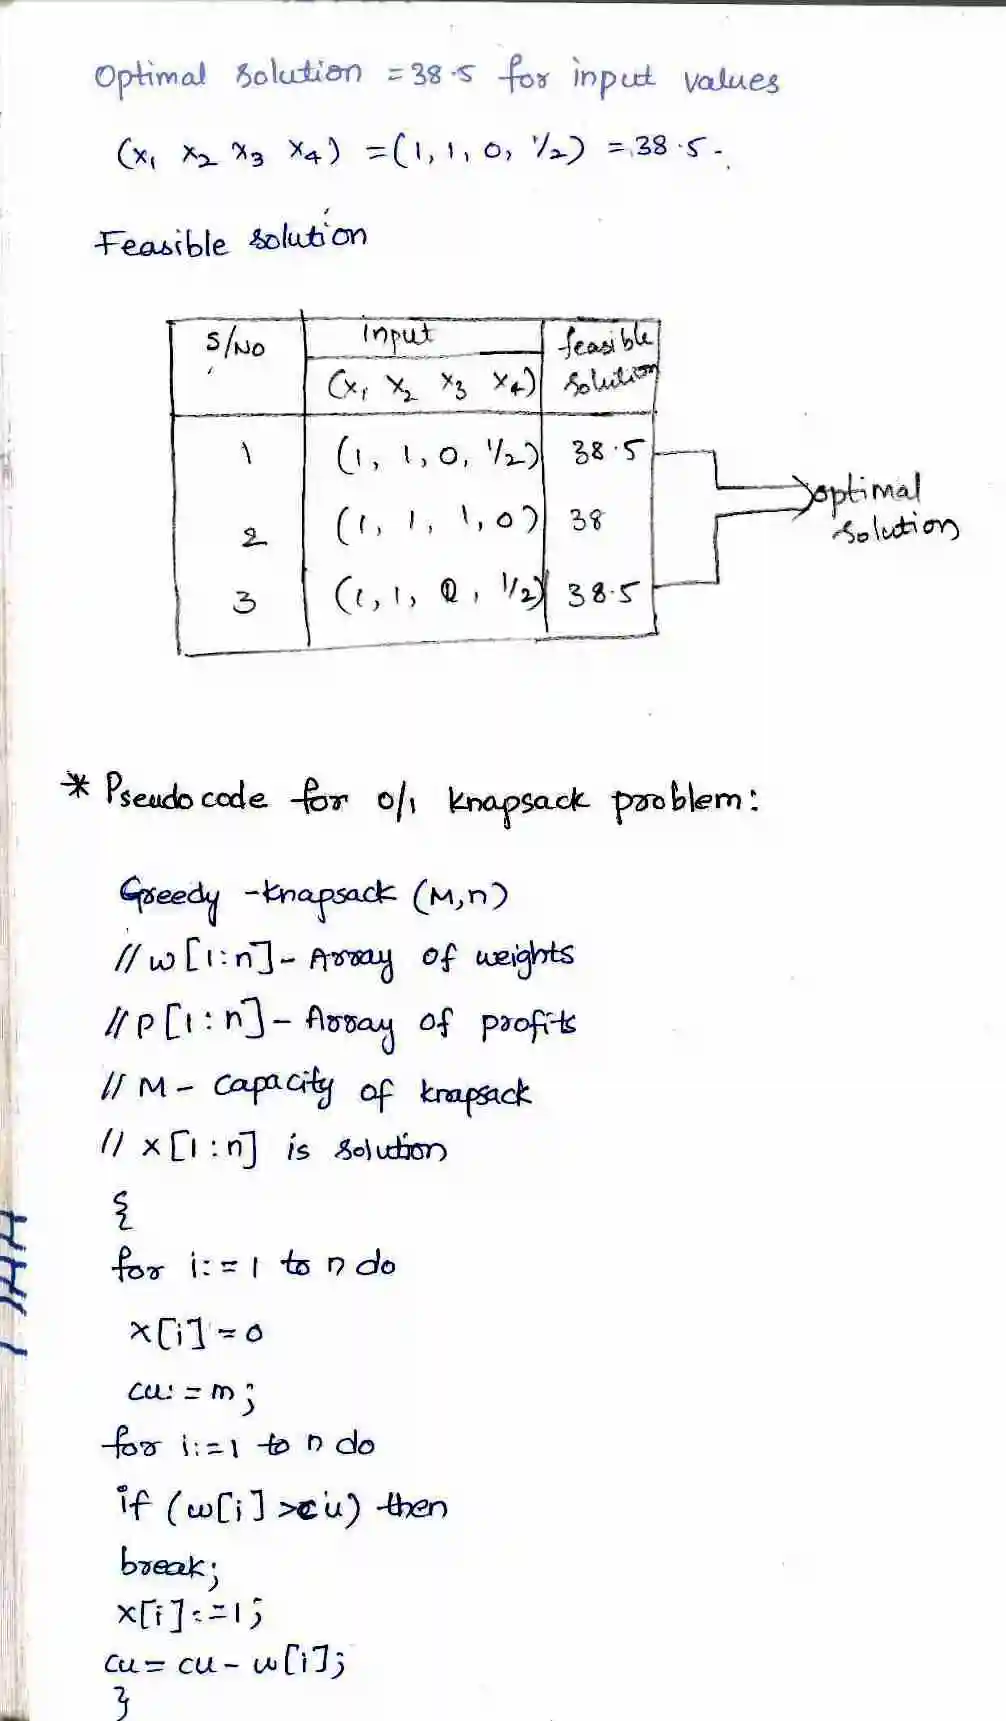 Optimal solution = 38.5 for input values
(x₁ x₂ x₃ x₄) = (1, 1, 0, 1/2) = 38.5.
Feasible solution
S/NO input feasible solution
(x₁ x₂ x₃ x₄)
1 (1, 1, 0, 1/2) 38.5
2 (1, 1, 1, 0) 38
3 (1, 1, 0, 1/2) 38.5
optimal solution
* Pseudo code for 0/1 knapsack problem:
Greedy -knapsack (M,n)
// w[1:n] - Array of weights
// P[1:n] - Array of profits
// M - capacity of knapsack
// x[1:n] is solution
{
for i:=1 to n do
x[i]=0
cu:=m;
for i:=1 to n do
if (w[i]>cu) then
break;
x[i]:=1;
cu=cu-w[i];
}